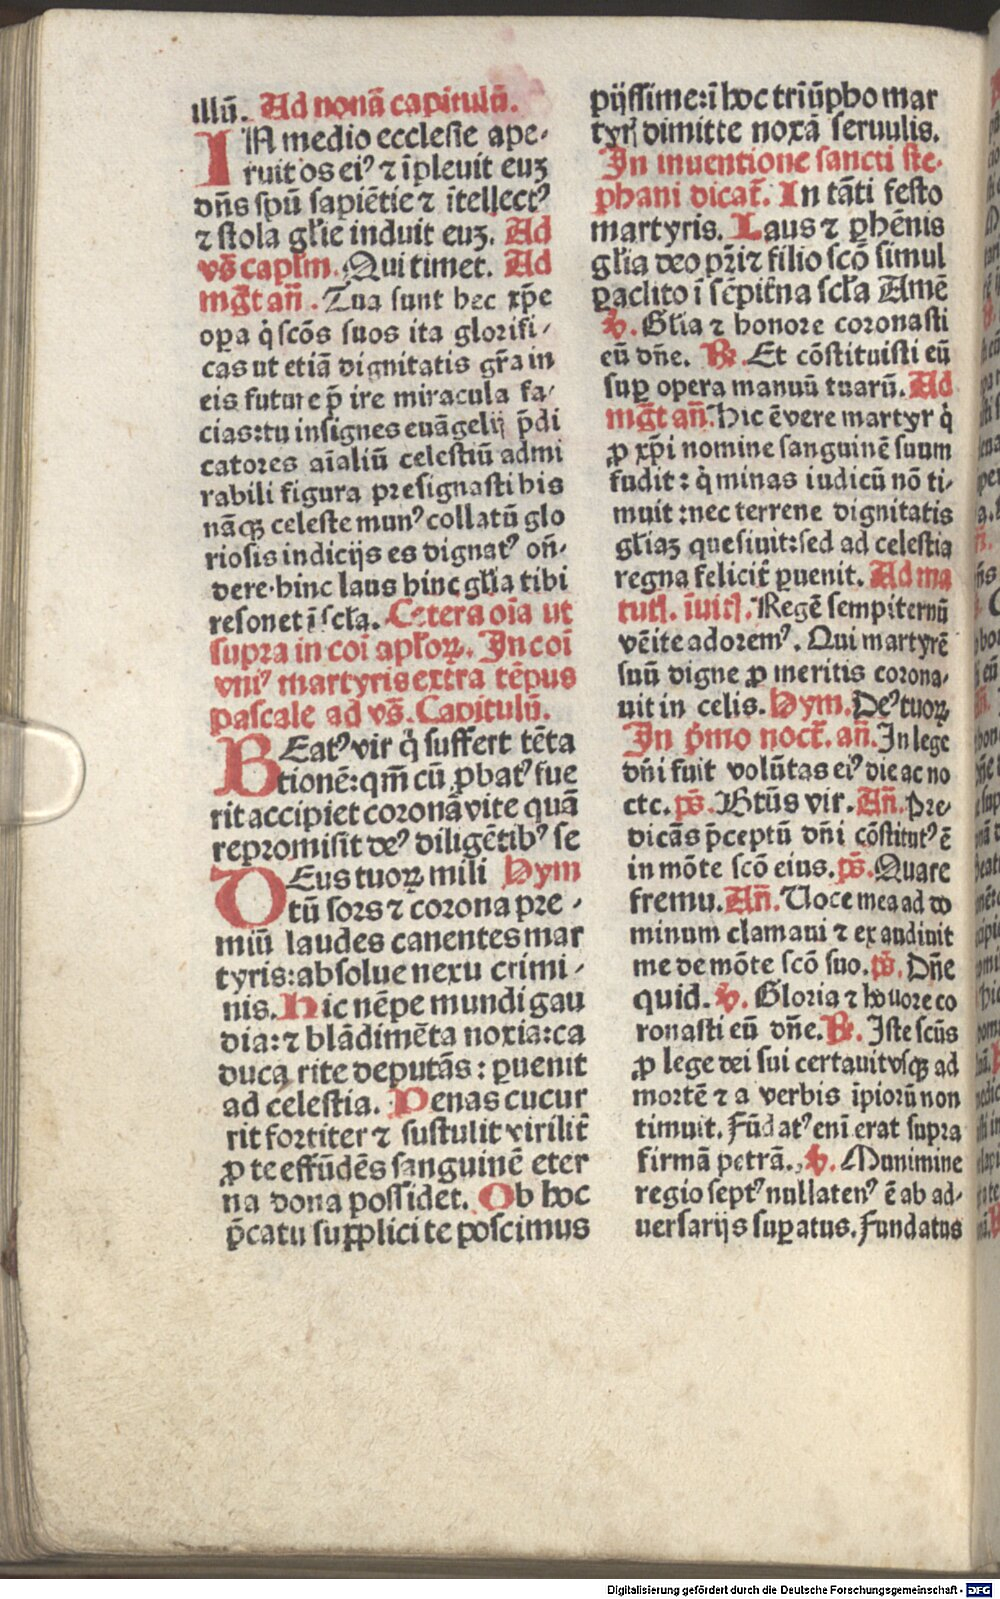 illū. Ad nonā capitulū.
IN medio ecclesie ape⸗
ruit os eiꝰ ⁊ īpleuit euʒ
dn̄s spū sapiētie ⁊ ītellectꝰ
⁊ stola gl̄ie induit euʒ. Ad
vs̄ capl̄m. Qui timet. Ad
mg̃t an̄. Tua sunt hec xp̄e
opa q̇ scōs suos ita glorifi⸗
cas ut etiā dignitatis gr̄a in
eis future p̄ ire miracula fa⸗
cias: tu insignes euāgelij p̄di
catores aīaliū celestiū admi
rabili figura presignasti his
nāqꝫ celeste munꝰ collatū glo
riosis indicijs es dignatꝰ on̄⸗
dere. hinc laus hinc gl̄ia tibi
resonet ī scl̄a. Cetera oīa ut
supra in coī apl̄oꝝ. In coī
vniꝰ martyris extra tēpus
pascale ad vs̄. Capitulū.
BEatꝰ vir q̇ suffert tēta
tionē: qm̄ cū ꝓbatꝰ fue
rit accipiet coronā vite quā
repromisit deꝰ diligētibꝰ se
DEus tuoꝝ mili Hym
tū sors ⁊ corona pre⸗
miū laudes canentes mar
tyris: absolue nexu crimi⸗
nis. Hic nēpe mundi gau
dia: ⁊ blādimēta noxia: ca
duca rite deputās: ꝑuenit
ad celestia. Penas cucur
rit fortiter ⁊ sustulit virilit̄
ꝓ te effūdēs sanguinē eter
na dona possidet. Ob hoc
p̄catu supplici te poscimus
pijssime: ī hoc triūpho mar
tyrꝭ dimitte noxā seruulis.
In inuentione sancti ste⸗
phani dicat̄. In tāti festo
martyris. Laus ⁊ ꝑhēnis
gl̄ia deo pr̄i ⁊ filio scō simul
ꝑaclito ī sēpit̄na scl̄a Amē
v. Gl̄ia ⁊ honore coronasti
eū dn̄e. R. Et cōstituisti eū
suꝑ opera manuū tuarū. Ad
mg̃t an̄. Hic ē vere martyr q̇
ꝓ xp̄i nomine sanguinē suum
fudit: q̇ minas iudicū nō ti⸗
muit: nec terrene dignitatis
gl̄iaʒ quesiuit: sed ad celestia
regna felicit̄ ꝑuenit. Ad ma
tutꝭ. īuitꝭ. Regē sempiternū
vēite adoremꝰ. Qui martyrē
suū digne ꝓ meritis corona⸗
uit in celis. Hym. Deꝰ tuoꝝ
In p̄mo noct̄. an̄. In lege
dn̄i fuit volūtas eiꝰ die ac no
cte. ps̄. Btūs vir. An̄. Pre⸗
dicās p̄ceptū dn̄i cōstitutꝰ ē
in mōte scō eius. ps̄. Quare
fremu. An̄. Voce mea ad do
minum clamaui ⁊ exaudiuit
me de mōte scō suo. ps̄. Dn̄e
quid. v. Gloria ⁊ honore co
ronasti eū dn̄e. R. Iste scūs
ꝓ lege dei sui certauit vsqꝫ ad
mortē ⁊ a verbis īpiorū non
timuit. Fūdatꝰ enī erat supra
firmā petrā. v. Munimine
regio septꝰ nullatenꝰ ē ab ad⸗
uersarijs suꝑatus. Fundatus
Digitalisierung gefördert durch die Deutsche Forschungsgemeinschaft - DFG